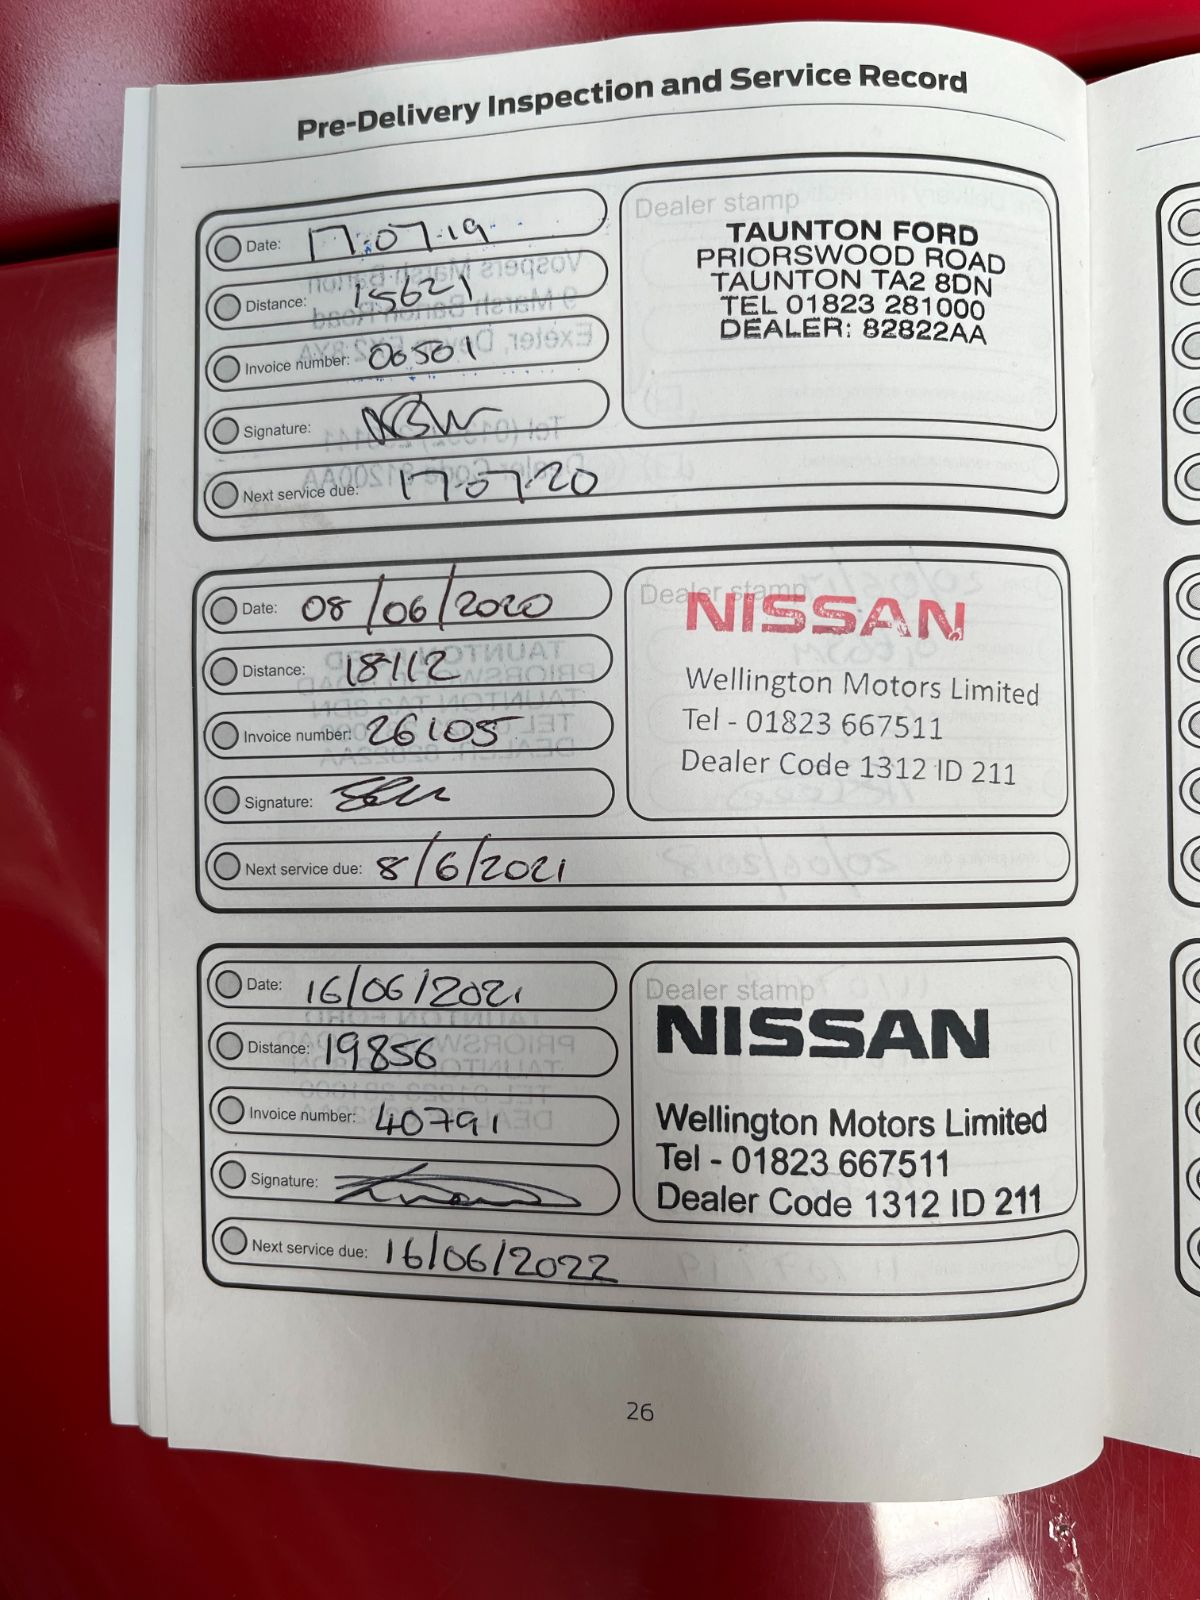 Pre-Delivery Inspection and Service Record
Date: 17.07.19
Distance: 15621
Invoice number: 00501
Signature:
Next service due: 17.07.20
Dealer stamp
TAUNTON FORD
PRIORSWOOD ROAD
TAUNTON TA2 8DN
TEL 01823 281000
DEALER: 82822AA
Date: 08/06/2020
Distance: 18112
Invoice number: 26105
Signature:
Next service due: 8/6/2021
Dealer stamp
NISSAN
Wellington Motors Limited
Tel - 01823 667511
Dealer Code 1312 ID 211
Date: 16/06/2021
Distance: 19856
Invoice number: 40791
Signature:
Next service due: 16/06/2022
Dealer stamp
NISSAN
Wellington Motors Limited
Tel - 01823 667511
Dealer Code 1312 ID 211
26